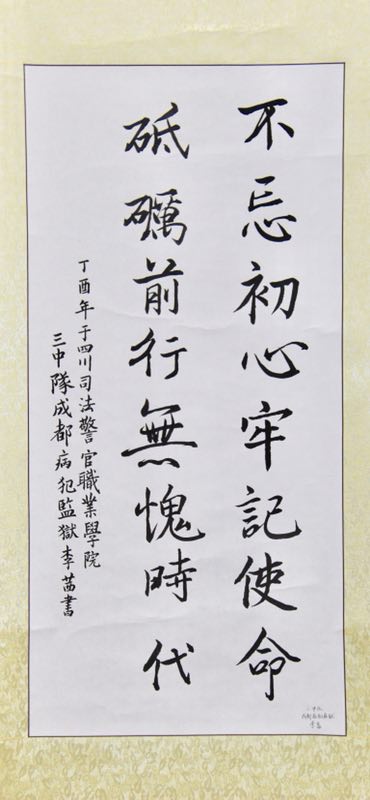 不忘初心牢記使命
砥礪前行無愧時代
丁酉年于四川司法警官職業學院
三中隊成都病犯監獄李茜書